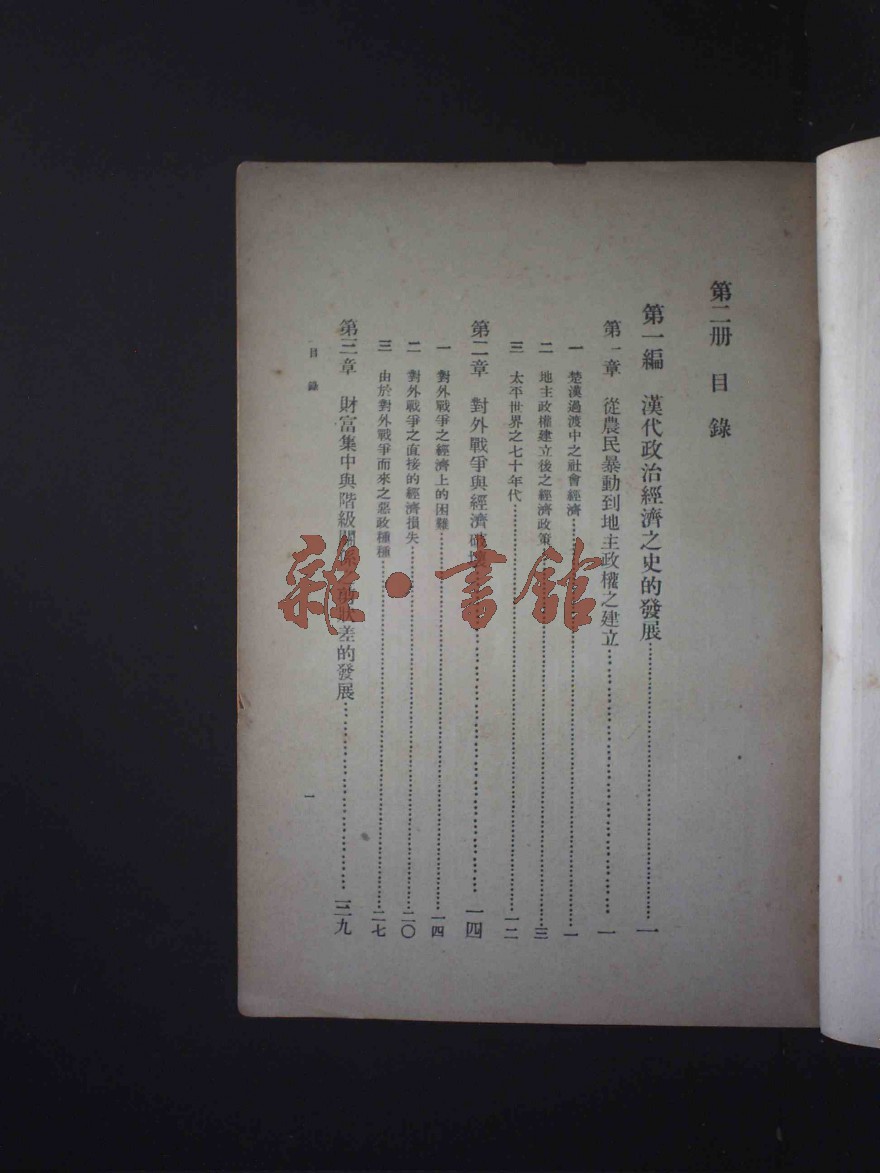 第二册 目錄
第一編 漢代政治經濟之史的發展……一
第一章 從農民暴動到地主政權之建立……一
一 楚漢過渡中之社會經濟……一
二 地主政權建立後之經濟政策……三
三 太平世界之七十年代……一二
第二章 對外戰爭與經濟破壞……一四
一 對外戰爭之經濟上的困難……一四
二 對外戰爭之直接的經濟損失……二〇
三 由於對外戰爭而來之惡政種種……二七
第三章 財富集中與階級關係 差的發展……三九
目錄
一
雜·書館